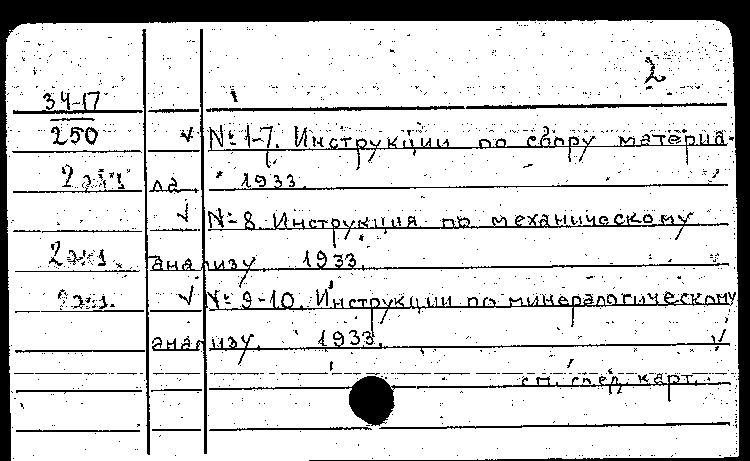 2
34-17
250 √ № 1-7. Инструкции по сбору материа-
2 экз. ла. 1933.
√ № 8. Инструкция по механическому
2 экз. анализу. 1933.
2 экз. √ № 9-10. Инструкции по минералогическому
анализу. 1933. √
см. след. карт.